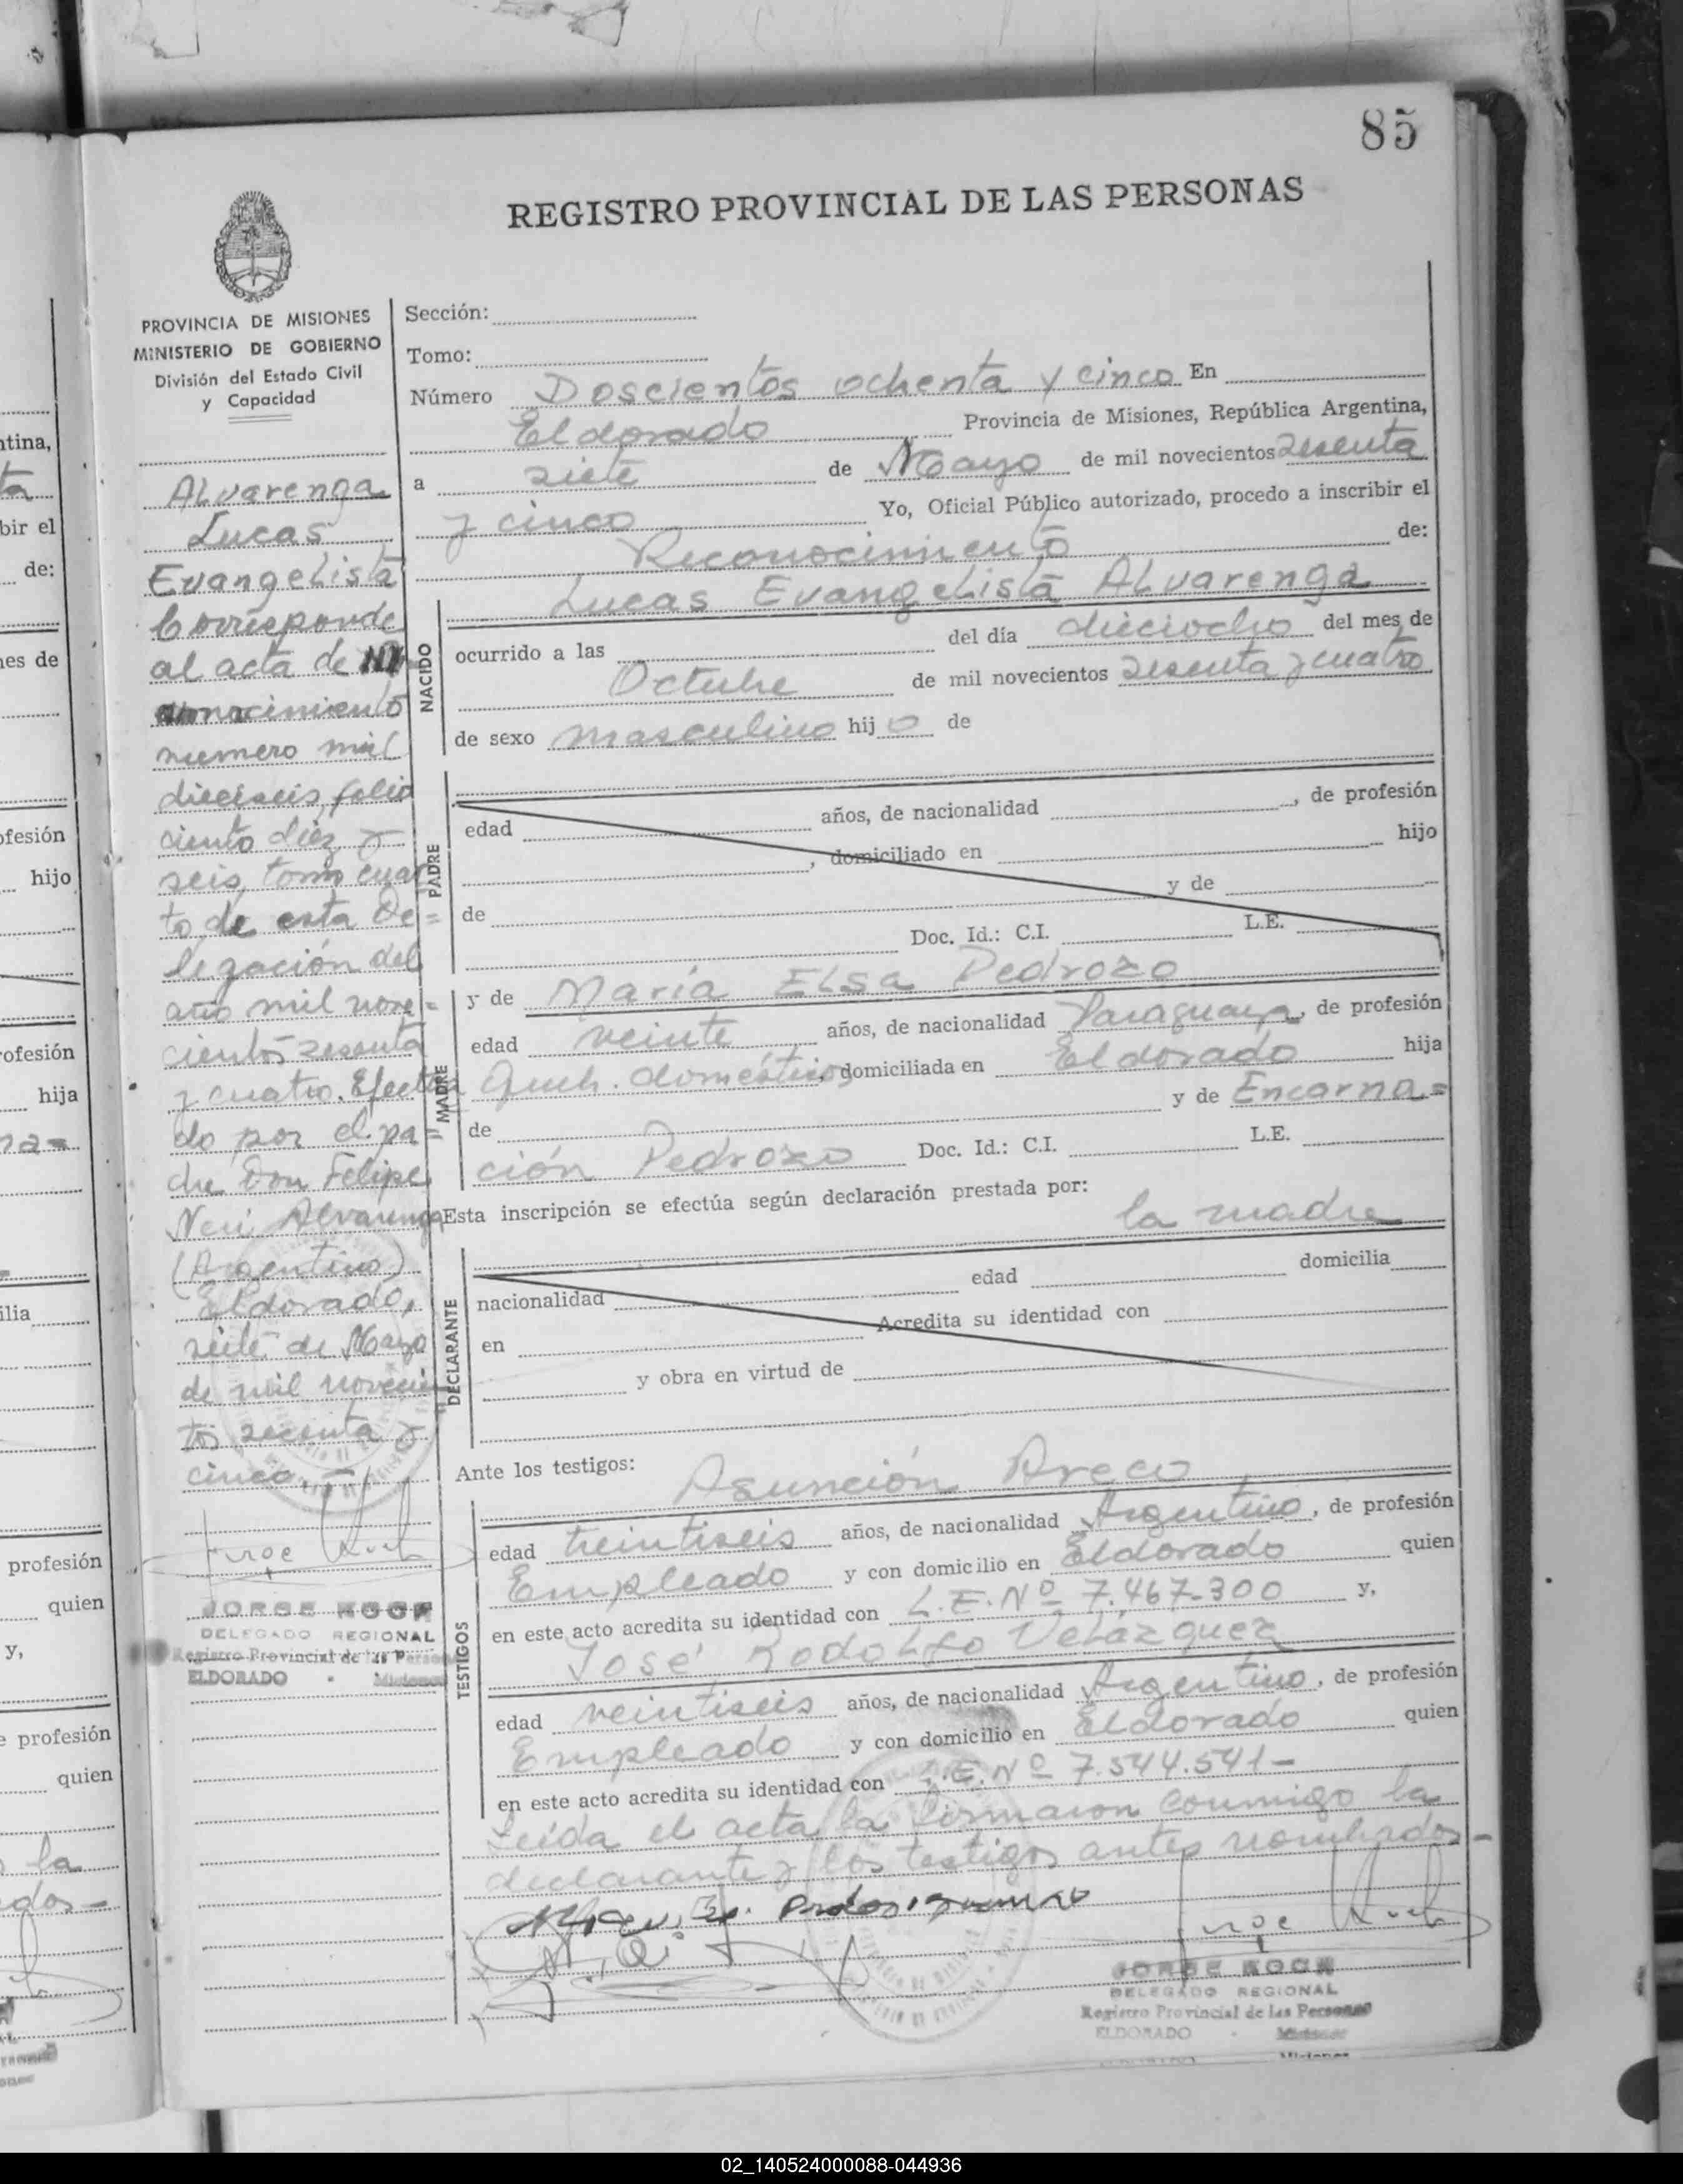 85
REGISTRO PROVINCIAL DE LAS PERSONAS
PROVINCIA DE MISIONES
MINISTERIO DE GOBIERNO
División del Estado Civil
y Capacidad
Alvarenga
Lucas
Evangelista
Corresponde
al acta de
nacimiento
numero mil
dieciseis, folio
ciento diez y
seis, tomo cuar
to de esta De=
legación del
año mil nove=
cientos sesenta
y cuatro. Efectua
do por el pa=
dre Don Felipe
Neri Alvarenga
(Argentino)
Eldorado,
siete de Mayo
de mil novecien
tos secenta y
cinco.-
Jorge Koch
JORGE KOCH
DELEGADO REGIONAL
Registro Provincial de las Personas
ELDORADO - Misiones
Sección:
Tomo:
Número Doscientos ochenta y cinco En
Eldorado Provincia de Misiones, República Argentina,
a siete de Mayo de mil novecientos sesenta
y cinco Yo, Oficial Público autorizado, procedo a inscribir el
Reconocimiento de:
Lucas Evangelista Alvarenga
NACIDO
ocurrido a las del día dieciocho del mes de
Octubre de mil novecientos sesenta y cuatro
de sexo masculino hijo de
PADRE
edad años, de nacionalidad , de profesión
, domiciliado en hijo
de y de
Doc. Id.: C.I. L.E.
MADRE
y de María Elsa Pedrozo
edad veinte años, de nacionalidad Paraguaya, de profesión
Queh. domésticos, domiciliada en Eldorado hija
de y de Encarna=
ción Pedrozo Doc. Id.: C.I. L.E.
Esta inscripción se efectúa según declaración prestada por:
la madre
DECLARANTE
nacionalidad edad domicilia
en Acredita su identidad con
y obra en virtud de
Ante los testigos:
Asunción Areco
TESTIGOS
edad treintiseis años, de nacionalidad Argentino, de profesión
Empleado y con domicilio en Eldorado quien
en este acto acredita su identidad con L.E. Nº 7.467.300 y,
José Rodolfo Velázquez
edad veintiseis años, de nacionalidad Argentino, de profesión
Empleado y con domicilio en Eldorado quien
en este acto acredita su identidad con L.E. Nº 7.544.541-
Leída el acta, la firmaron conmigo la
declarante y los testigos antes nombrados-
Jorge Koch
JORGE KOCH
DELEGADO REGIONAL
Registro Provincial de las Personas
ELDORADO - Misiones
Misiones
02_140524000088-044936